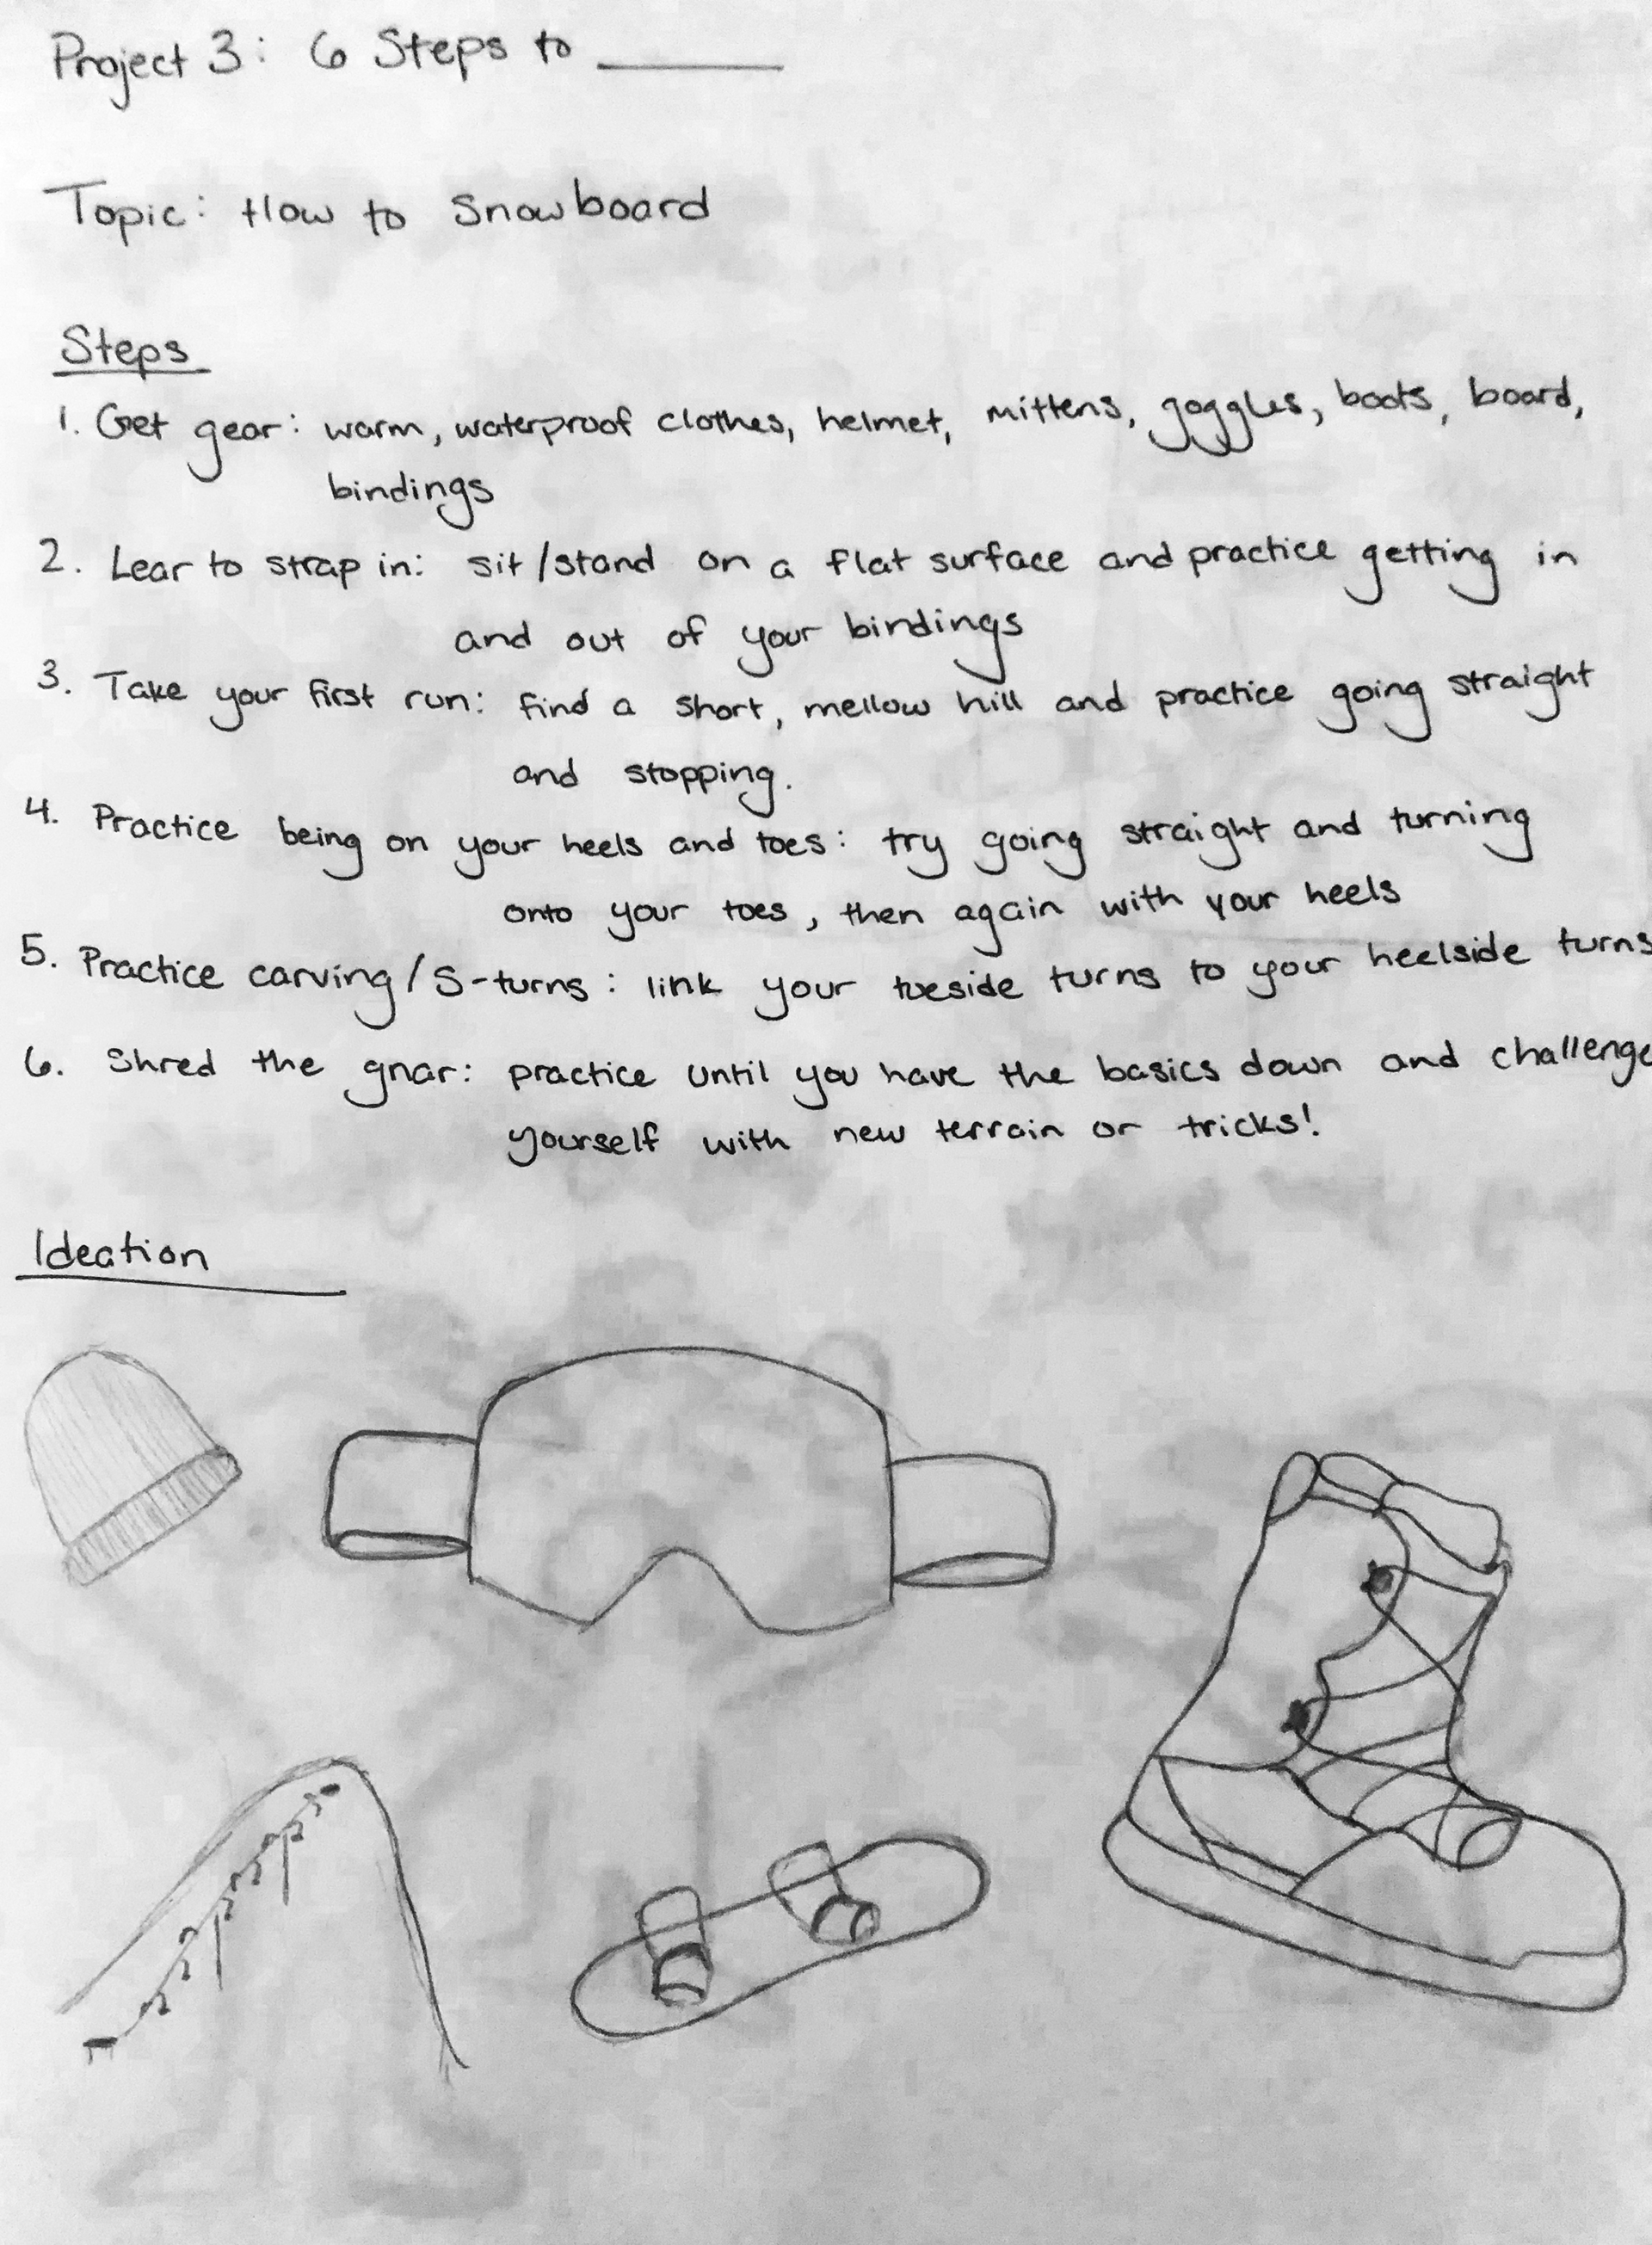 Project 3: 6 Steps to ______
Topic: How to Snowboard
Steps
1. Get gear: warm, waterproof clothes, helmet, mittens, goggles, boots, board,
bindings
2. Lear to strap in: sit/stand on a flat surface and practice getting in
and out of your bindings
3. Take your first run: find a short, mellow hill and practice going straight
and stopping.
4. Practice being on your heels and toes: try going straight and turning
onto your toes, then again with your heels
5. Practice carving/S-turns: link your toeside turns to your heelside turns
6. Shred the gnar: practice until you have the basics down and challenge
yourself with new terrain or tricks!
Ideation